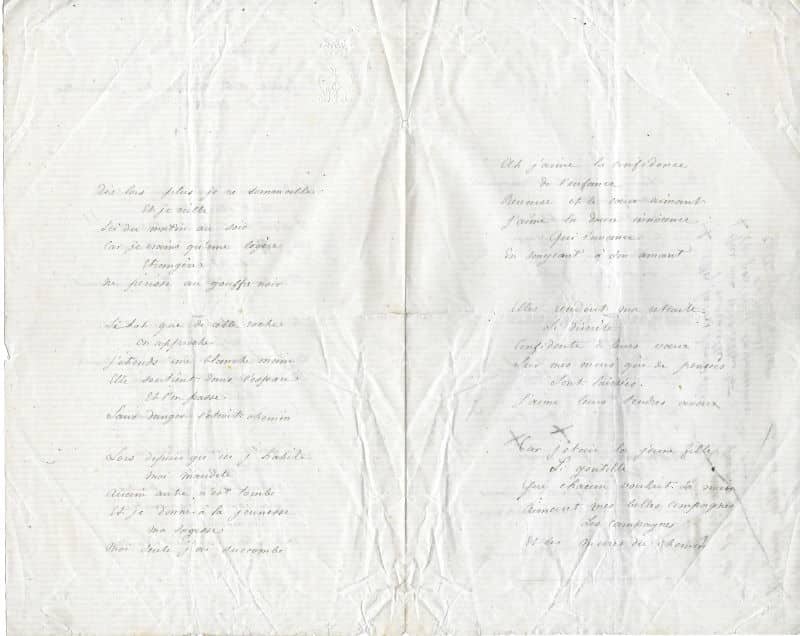 Dès lors plus je ne sommeille
Et je veille
Ici du matin au soir
Car je crains qu'une légère
Etrangère
Ne périsse au gouffre noir
Sitôt que de cette roche
On approche
J'étends une blanche main
Elle soutient dans l'espace
Et l'on passe
Sans danger l'étroit chemin
Lors depuis qu'ici j'habite
Moi maudite
Aucun autre n'est tombé
Et je donne à la jeunesse
Ma sagesse
Moi seule j'ai succombé
Ah j'aime la confidence
De l'enfance
Rieuse et le cœur aimant
J'aime la douce innocence
Qui s'avance
En songeant à son amant
Elles rendent ma retraite
Si discrète
Confidente de leurs vœux
Sur mes murs que de pensées
Sont laissées.
J'aime leurs tendres aveux
Car j'étais la jeune fille
Si gentille
Que chacun voulait la main
Aimant mes belles compagnes
Les campagnes
Et les pierres du chemin